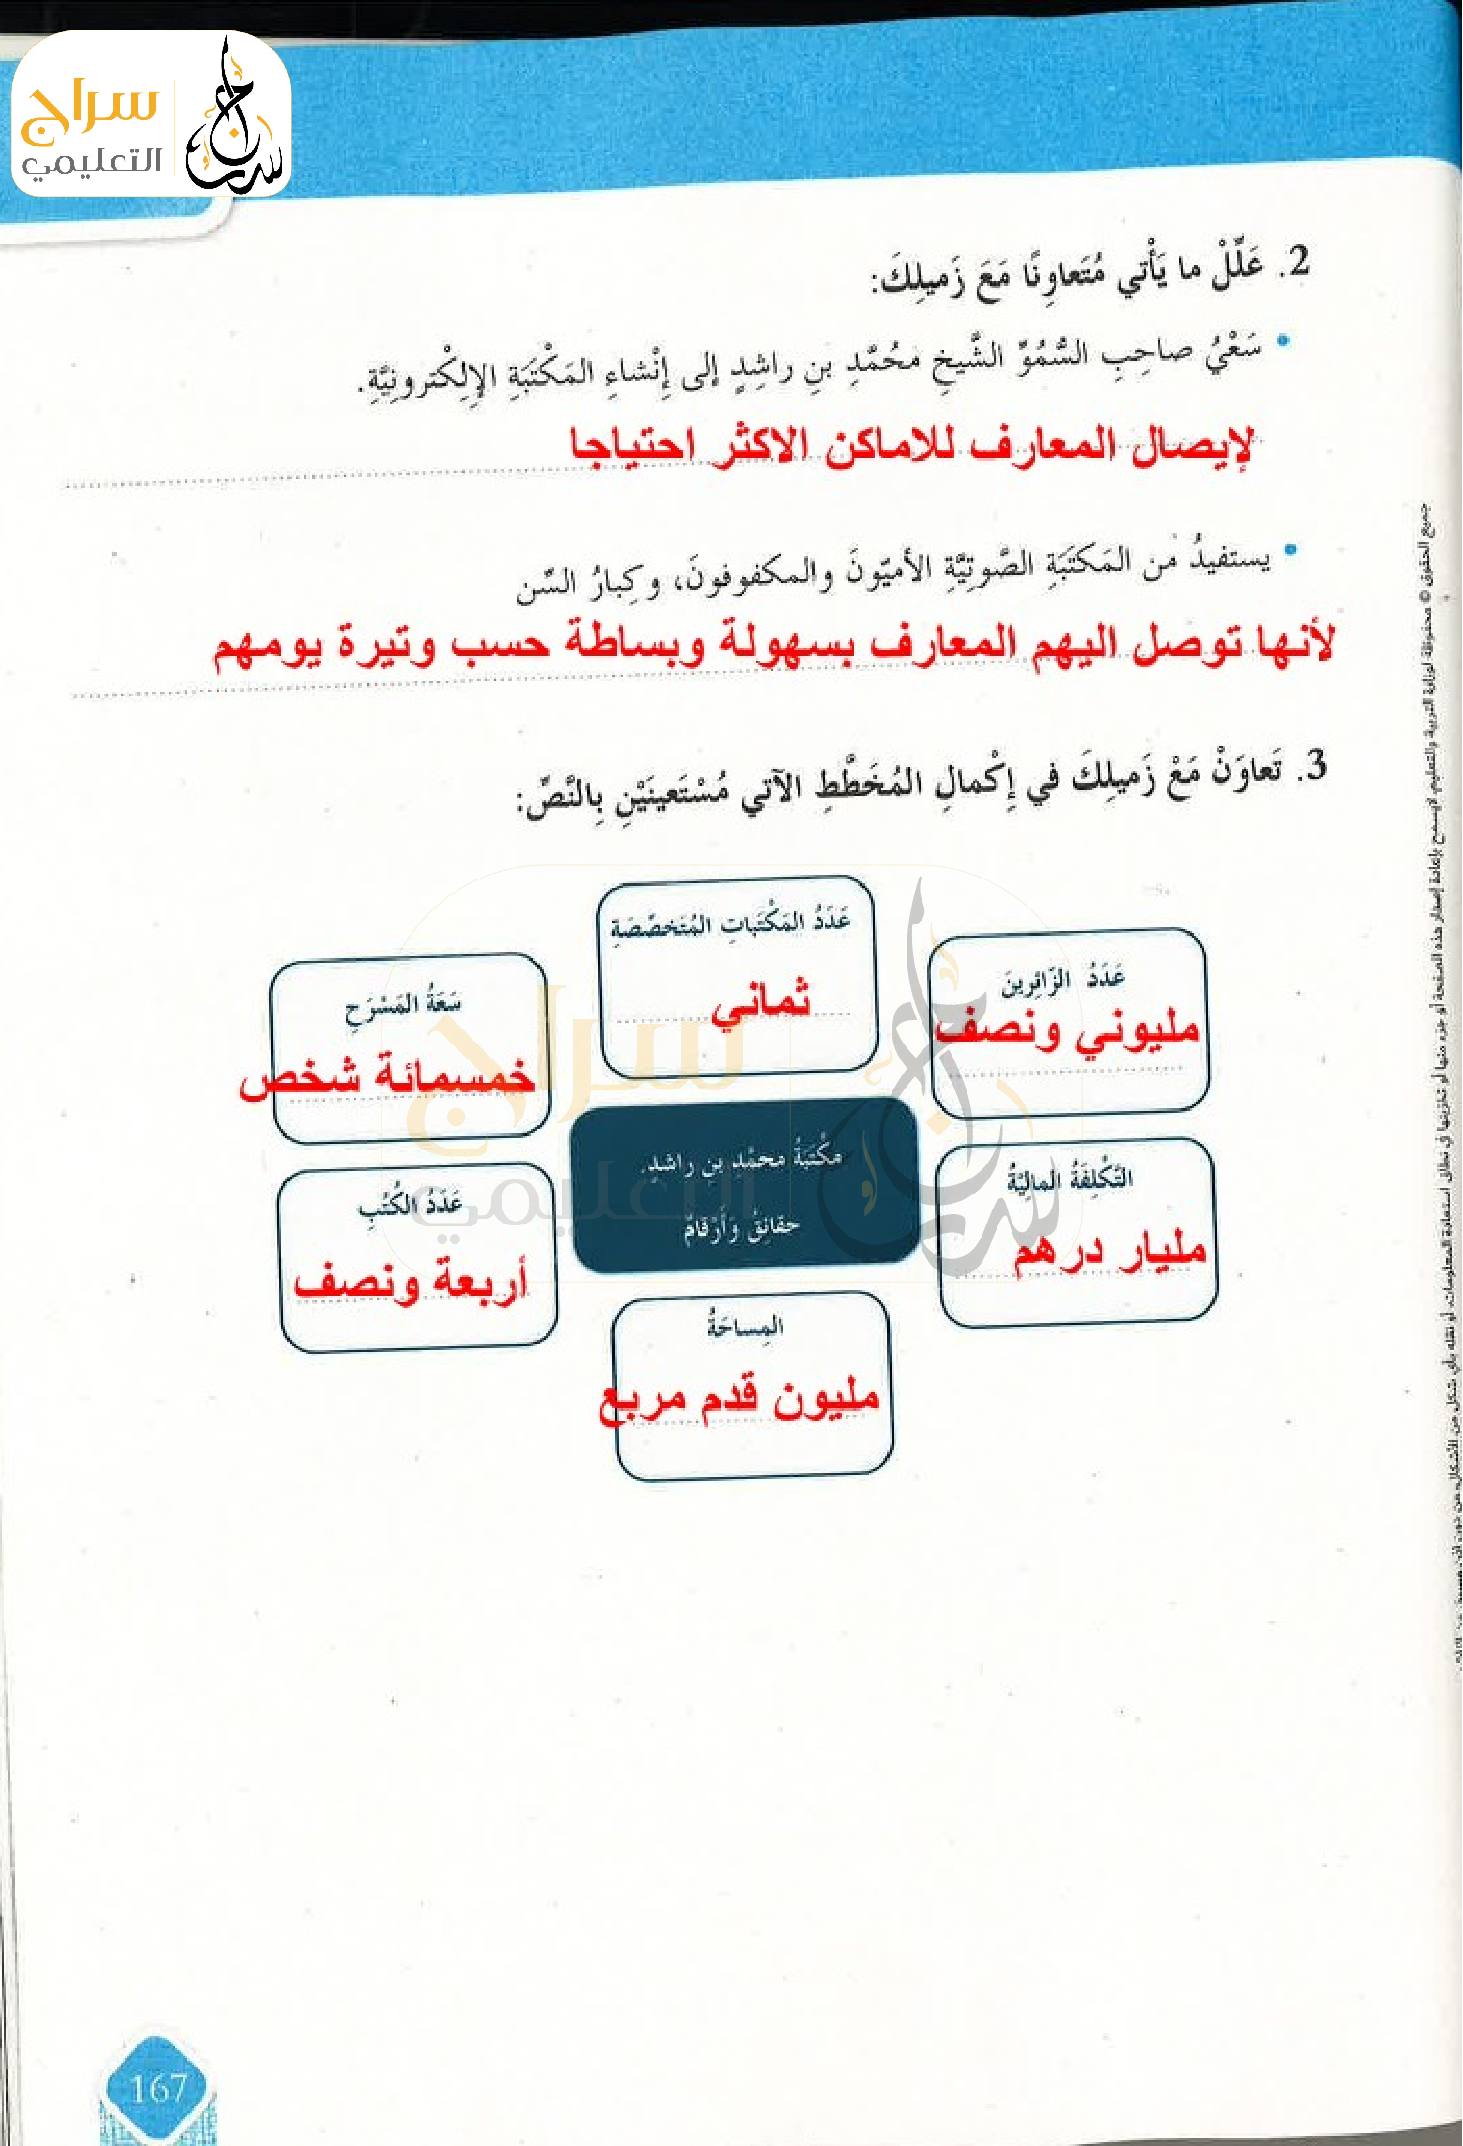 سراج
التعليمي
2. عَلِّلْ ما يَأْتي مُتَعاوِنًا مَعَ زَميلِكَ:
• سَعْيُ صاحِبِ السُّمُوِّ الشَّيخِ محُمَّدِ بنِ راشِدٍ إلى إِنْشاءِ المَكْتَبَةِ الإِلِكْترونِيَّةِ.
لإيصال المعارف للاماكن الاكثر احتياجا
• يستفيدُ من المَكتَبَةِ الصَّوتِيَّةِ الأميّونَ والمكفوفونَ، وكِبارُ السِّن
لأنها توصل اليهم المعارف بسهولة وبساطة حسب وتيرة يومهم
3. تَعاوَنْ مَعْ زَميلِكَ في إِكْمالِ المُخَطَّطِ الآتي مُسْتَعينَيْنِ بِالنَّصِّ:
عَدَدُ المَكْتَباتِ المُتَخصِّصَةِ
ثماني
عَدَدُ الزّائِرينَ
مليوني ونصف
سَعَةُ المَسْرَحِ
خمسمائة شخص
مكْتَبَةُ محمَّدِ بنِ راشدٍ.
حقائِقُ وَأَرْقامٌ
التَّكْلِفَةُ الماليَّةُ
مليار درهم
عَدَدُ الكُتُبِ
أربعة ونصف
المِساحَةُ
مليون قدم مربع
جميع الحقوق © محفوظة لوزارة التربية والتعليم. لايسمح بإعادة إصدار هذه الصفحة أو جزء منها أو تخزينها في نطاق استعادة المعلومات، أو نقله بأي شكل من الأشكال، من دون إذن
167